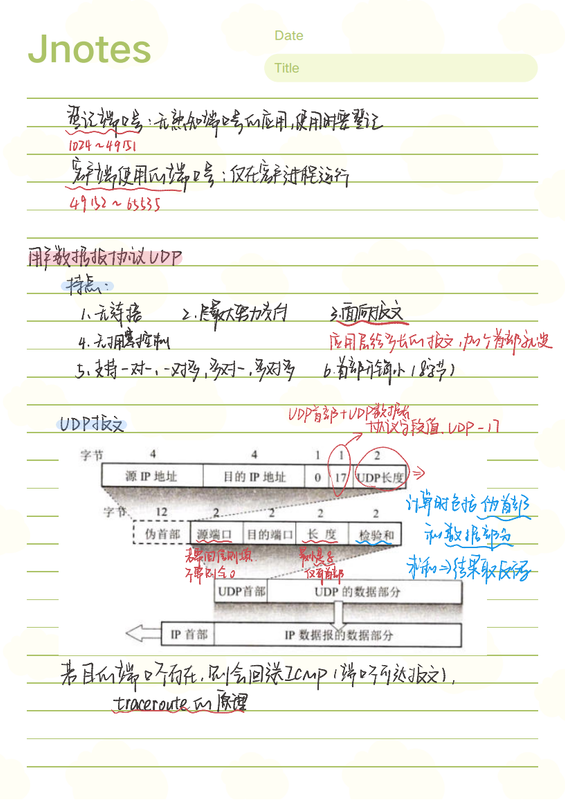 Jnotes
Date
Title
登记端口号：无熟知端口号的应用，使用时要登记
1024～49151
客户端使用的端口号：仅在客户进程运行
49152～65535
用户数据报协议UDP
特点：
1.无连接 2.尽最大努力交付 3.面向报文
4.无拥塞控制 应用层给多长的报文，加个首部就发
5.支持一对一，一对多，多对一，多对多 6.首部开销小（8字节）
UDP报文
UDP首部+UDP数据
协议字段值，UDP-17
字节 4 4 1 1 2
源 IP 地址 目的 IP 地址 0 17 UDP长度
字节 12 2 2 2 2
伪首部 源端口 目的端口 长 度 检验和
若要回信则填，
不需则全0
最小是8
仅有首部
计算时包括伪首部
和数据部分
求和⇒结果取反码
UDP首部 UDP 的数据部分
IP 首部 IP 数据报的数据部分
若目的端口不存在，则会回送ICMP（端口不可达报文），
traceroute的原理